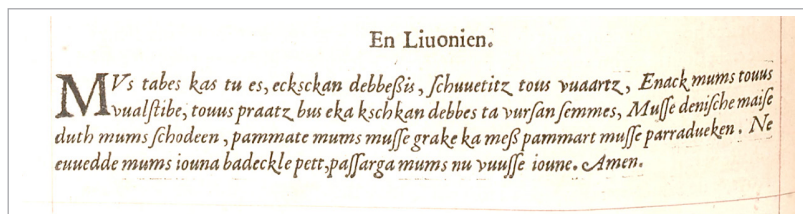 En Liuonien.
MVs tabes kas tu es, eckſckan debbeßis, ſchuuetitz tous vuaartz, Enack mums touus
vualſtibe, touus praatz bus eka kschkan debbes ta vurſan ſemmes, Muſſe deniſche maiſe
duth mums ſchodeen, pammate mums muſſe grake ka meß pammart muſſe parradueken. Ne
euuedde mums iouna badeckle pett, paſſarga mums nu vuuſſe ioune. Amen.